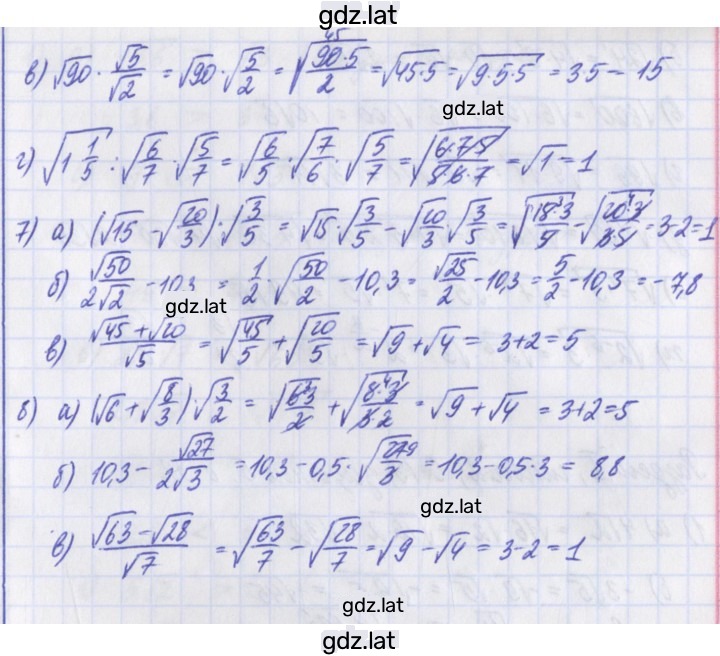 gdz.lat
в) √90 · √5/√2 = √90 · √(5/2) = √(90·5/2) 45 = √(45·5) = √(9·5·5) = 3·5 - 15
gdz.lat
г) √(1 1/5) : √(6/7) · √(5/7) = √(6/5) · √(7/6) · √(5/7) = √(6·7·5/5·6·7) = √1 = 1
7) а) (√15 - √(20/3)) · √(3/5) = √15 · √(3/5) - √(20/3) · √(3/5) = √(15·3/5) - √(20·3/3·5) = 3-2=1
б) √50/2√2 - 10,3 = 1/2 · √(50/2) - 10,3 = √25/2 - 10,3 = 5/2 - 10,3 = -7,8
gdz.lat
в) √45+√20/√5 = √(45/5) + √(20/5) = √9 + √4 = 3+2 = 5
8) а) (√6 + √(8/3)) · √(3/2) = √(6·3/2) + √(8·3/3·2) = √9 + √4 = 3+2=5
б) 10,3 - √27/2√3 = 10,3 - 0,5 · √(27/3) 9 = 10,3 - 0,5·3 = 8,8
gdz.lat
в) √63-√28/√7 = √(63/7) - √(28/7) = √9 - √4 = 3-2 = 1
gdz.lat
gdz.lat